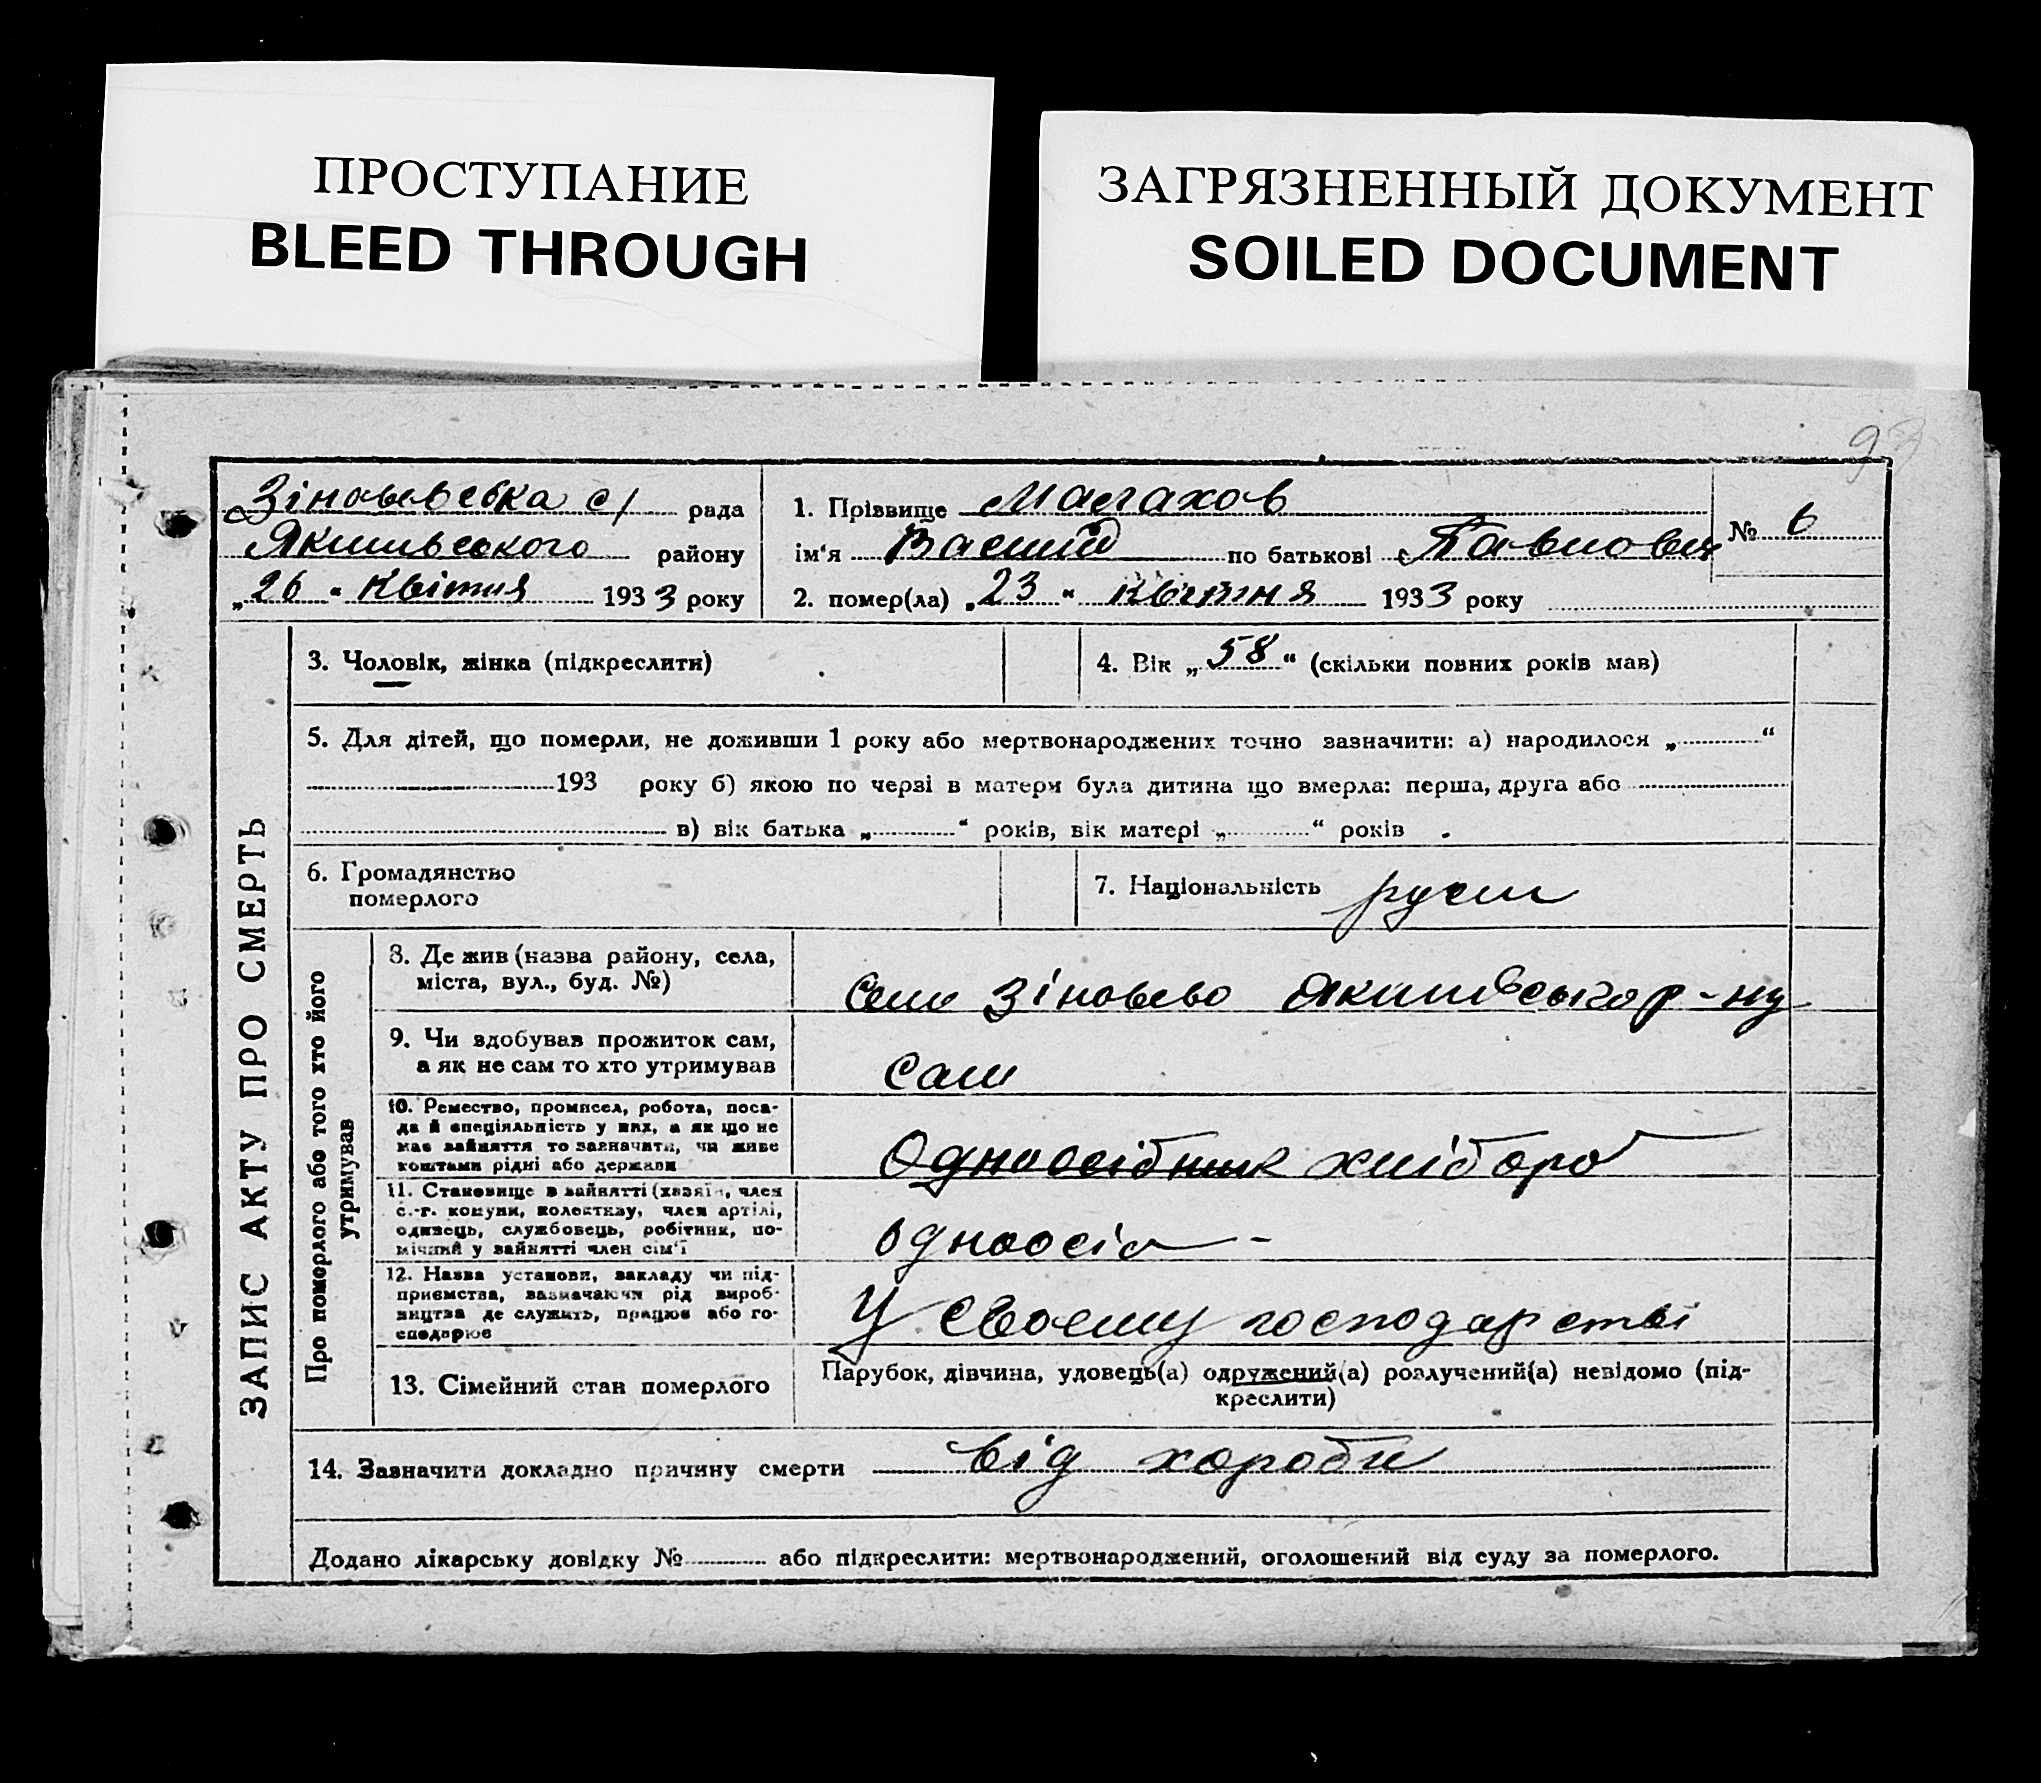 ПРОСТУПАНИЕ
BLEED THROUGH
ЗАГРЯЗНЕННЫЙ ДОКУМЕНТ
SOILED DOCUMENT
9
ЗАПИС АКТУ ПРО СМЕРТЬ
Зіновьевська с/ рада
району
„26“ Квітня 1933 року
1. Прізвище Малахов
ім'я Василій по батькові Павлович
№ 6
2. помер(ла) „23“ квітня 1933 року
3. Чоловік, жінка (підкреслити)
4. Вік „58“ (скільки повних років мав)
5. Для дітей, що померли, не доживши 1 року або мертвонароджених точно зазначити: а) народилося „ “
193 року б) якою по черзі в матери була дитина що вмерла: перша, друга або
в) вік батька „ “ років, вік матері „ “ років
6. Громадянство
померлого
7. Національність русск
Про померлого або того хто його
утримував
8. Де жив (назва району, села,
міста, вул., буд. №)
село Зіновьево р-ну
9. Чи здобував прожиток сам,
а як не сам то хто утримував
сам
10. Ремество, промисел, робота, поса-
да й спеціяльність у них, а як що не
має зайняття то зазначити, чи живе
коштами рідні або держави
Одноосібник хліборо
11. Становище в зайнятті (хазяїн, член
с.-г. комуни, колективу, член артілі,
одинець, службовець, робітник, по-
мічний у зайнятті член сім'ї
одноосіб -
12. Назва установи, закладу чи під-
приємства, зазначаючи рід вироб-
ництва де служить, працює або го-
сподарює
У своему господарстві
13. Сімейний стан померлого
Парубок, дівчина, удовець(а) одружений(а) розлучений(а) невідомо (під-
креслити)
14. Зазначити докладно причину смерти від хороби
Додано лікарську довідку № або підкреслити: мертвонароджений, оголошений від суду за померлого.